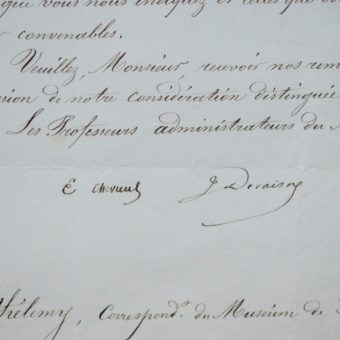 que vous nous indiquez et celles que
convenables.
Veuillez, Monsieur, recevoir nos rem
sion de notre considération distinguée
Les Professeurs administrateurs du
E Chevreul J Decaisne
thélemy, Correspond.t du Muséum de